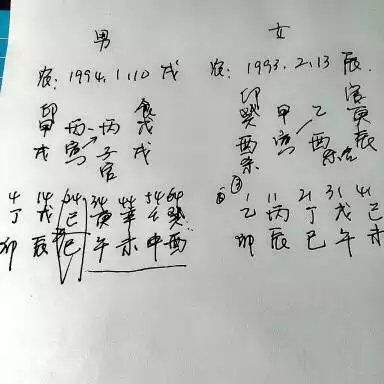 男
农: 1994.1.10 戌
印 食
甲 丙 丙 戊
戌 寅 子 戌
官
4 14 24 34 44 54 64
丁 戊 己 庚 辛 壬 癸
卯 辰 巳 午 未 申 酉
女
农: 1993.2.13 辰
印 官
癸 甲 乙 庚
酉 寅 酉 辰
杀
1 11 21 31 41
乙 丙 丁 戊 己
卯 辰 巳 午 未